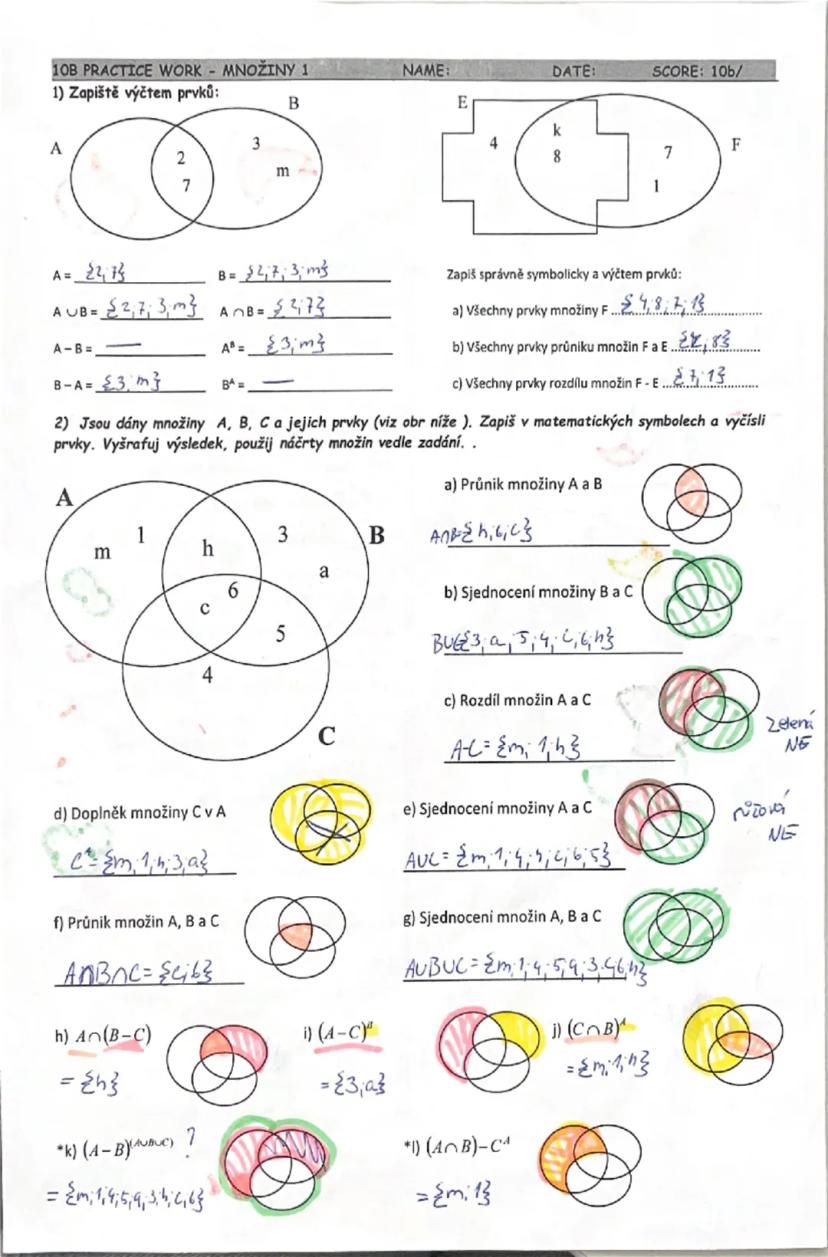 10B PRACTICE WORK – MNOŽINY 1 NAME: DATE: SCORE: 10b/
1) Zapiště výčtem prvků:
A B 2 7 3 m
E F 4 k 8 7 1
A = {2;7} B = {2;7;3;m}
Zapiš správně symbolicky a výčtem prvků:
A ∪ B = {2;7;3;m} A ∩ B = {2;7}
a) Všechny prvky množiny F {4;8;7;1}
A – B = — Aᴮ = {3;m}
b) Všechny prvky průniku množin F a E {k;8}
B – A = {3;m} Bᴬ = —
c) Všechny prvky rozdílu množin F - E {7;1}
2) Jsou dány množiny A, B, C a jejich prvky (viz obr níže ). Zapiš v matematických symbolech a vyčísli
prvky. Vyšrafuj výsledek, použij náčrty množin vedle zadání. .
A m 1 h 3 a B 6 c 5 4 C
a) Průnik množiny A a B
A∩B={h;6;c}
b) Sjednocení množiny B a C
B∪C={3;a;5;4;c;6;h}
c) Rozdíl množin A a C
A-C={m;1;h}
Zelená
NE
d) Doplněk množiny C v A
Cᴬ={m;1;h;3;a}
e) Sjednocení množiny A a C
A∪C={m;1;4;h;c;6;5}
růžová
NE
f) Průnik množin A, B a C
A∩B∩C={c;6}
g) Sjednocení množin A, B a C
A∪B∪C={m;1;4;5;a;3;c;6;h}
h) A∩(B–C)
={h}
i) (A–C)ᴮ
={3;a}
j) (C∩B)ᴬ
={m;1;h}
*k) (A–B)⁽ᴬ∪ᴮ∪ᶜ⁾ ?
={m;1;4;5;a;3;h;c;6}
*l) (A∩B)–Cᴬ
={m;1}